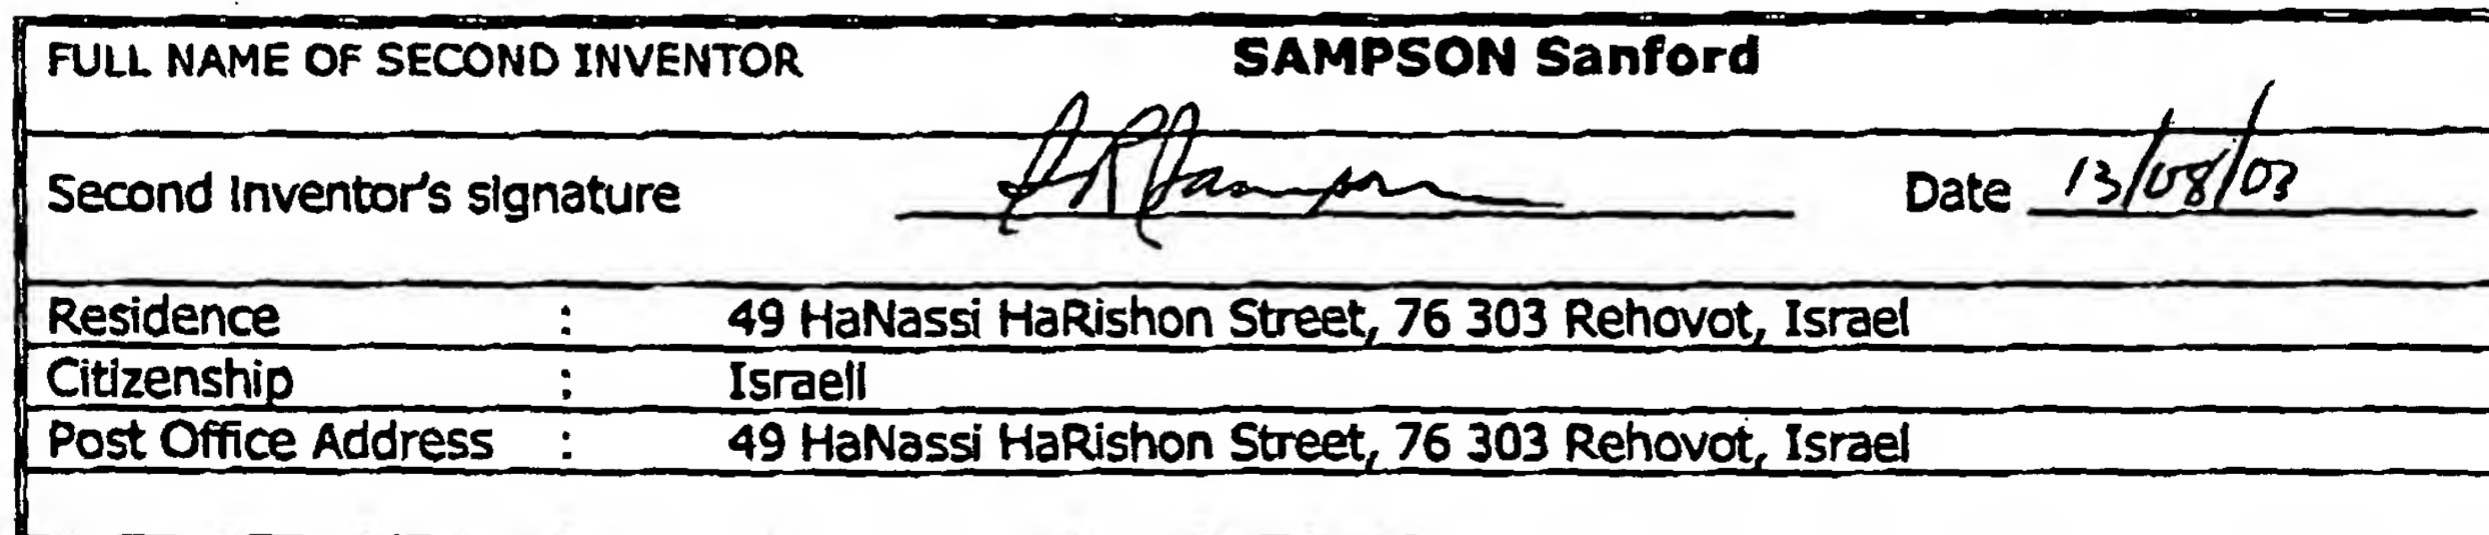 FULL NAME OF SECOND INVENTOR SAMPSON Sanford
Second Inventor's signature SR Sampson Date 13/08/03
Residence : 49 HaNassi HaRishon Street, 76 303 Rehovot, Israel
Citizenship : Israeli
Post Office Address : 49 HaNassi HaRishon Street, 76 303 Rehovot, Israel